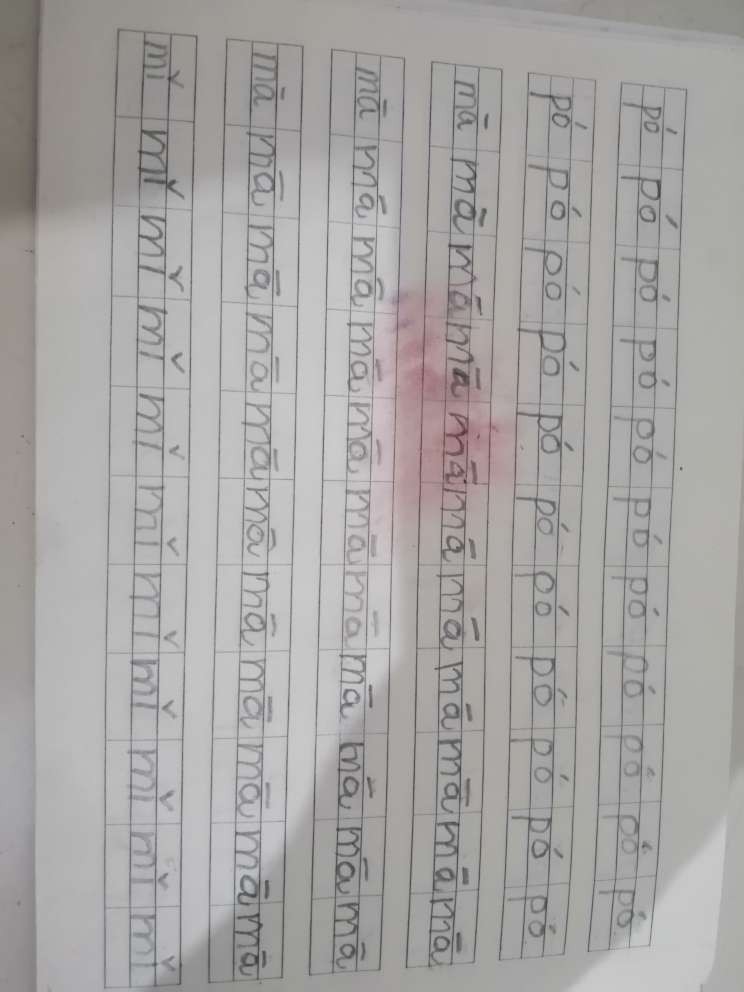 pó pó pó pó pó pó pó pó pó pó pó
pó pó pó pó pó pó pó pó pó pó pó
mā mā mā mā mā mā mā mā mā mā mā
mā mā mā mā mā mā mā mā mā mā mā
mā mā mā mā mā mā mā mā mā mā mā
mǐ mǐ mǐ mǐ mǐ mǐ mǐ mǐ mǐ mǐ mǐ